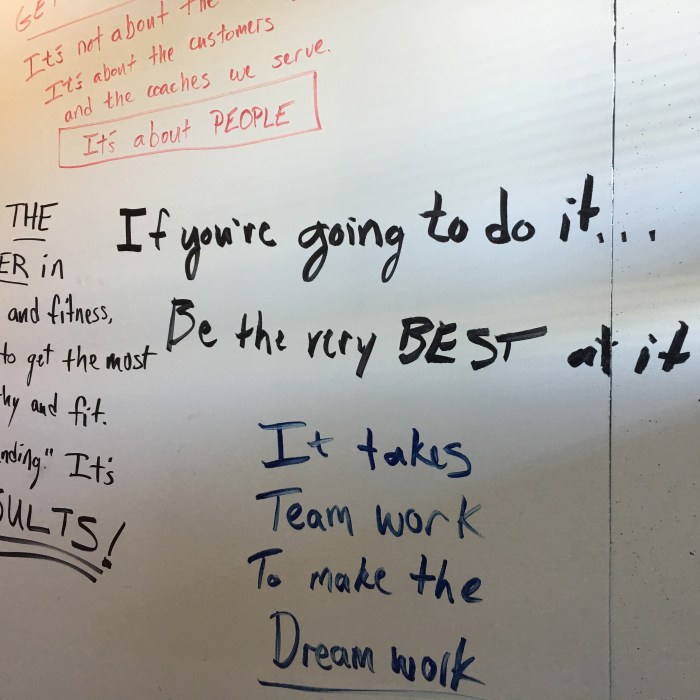 It's not about the
It's about the customers
and the coaches we serve.
It's about PEOPLE
THE
ER in
and fitness,
to get the most
hy and fit.
nding." It's
SULTS!
If you're going to do it...
Be the very BEST at it
It takes
Team work
To make the
Dream work